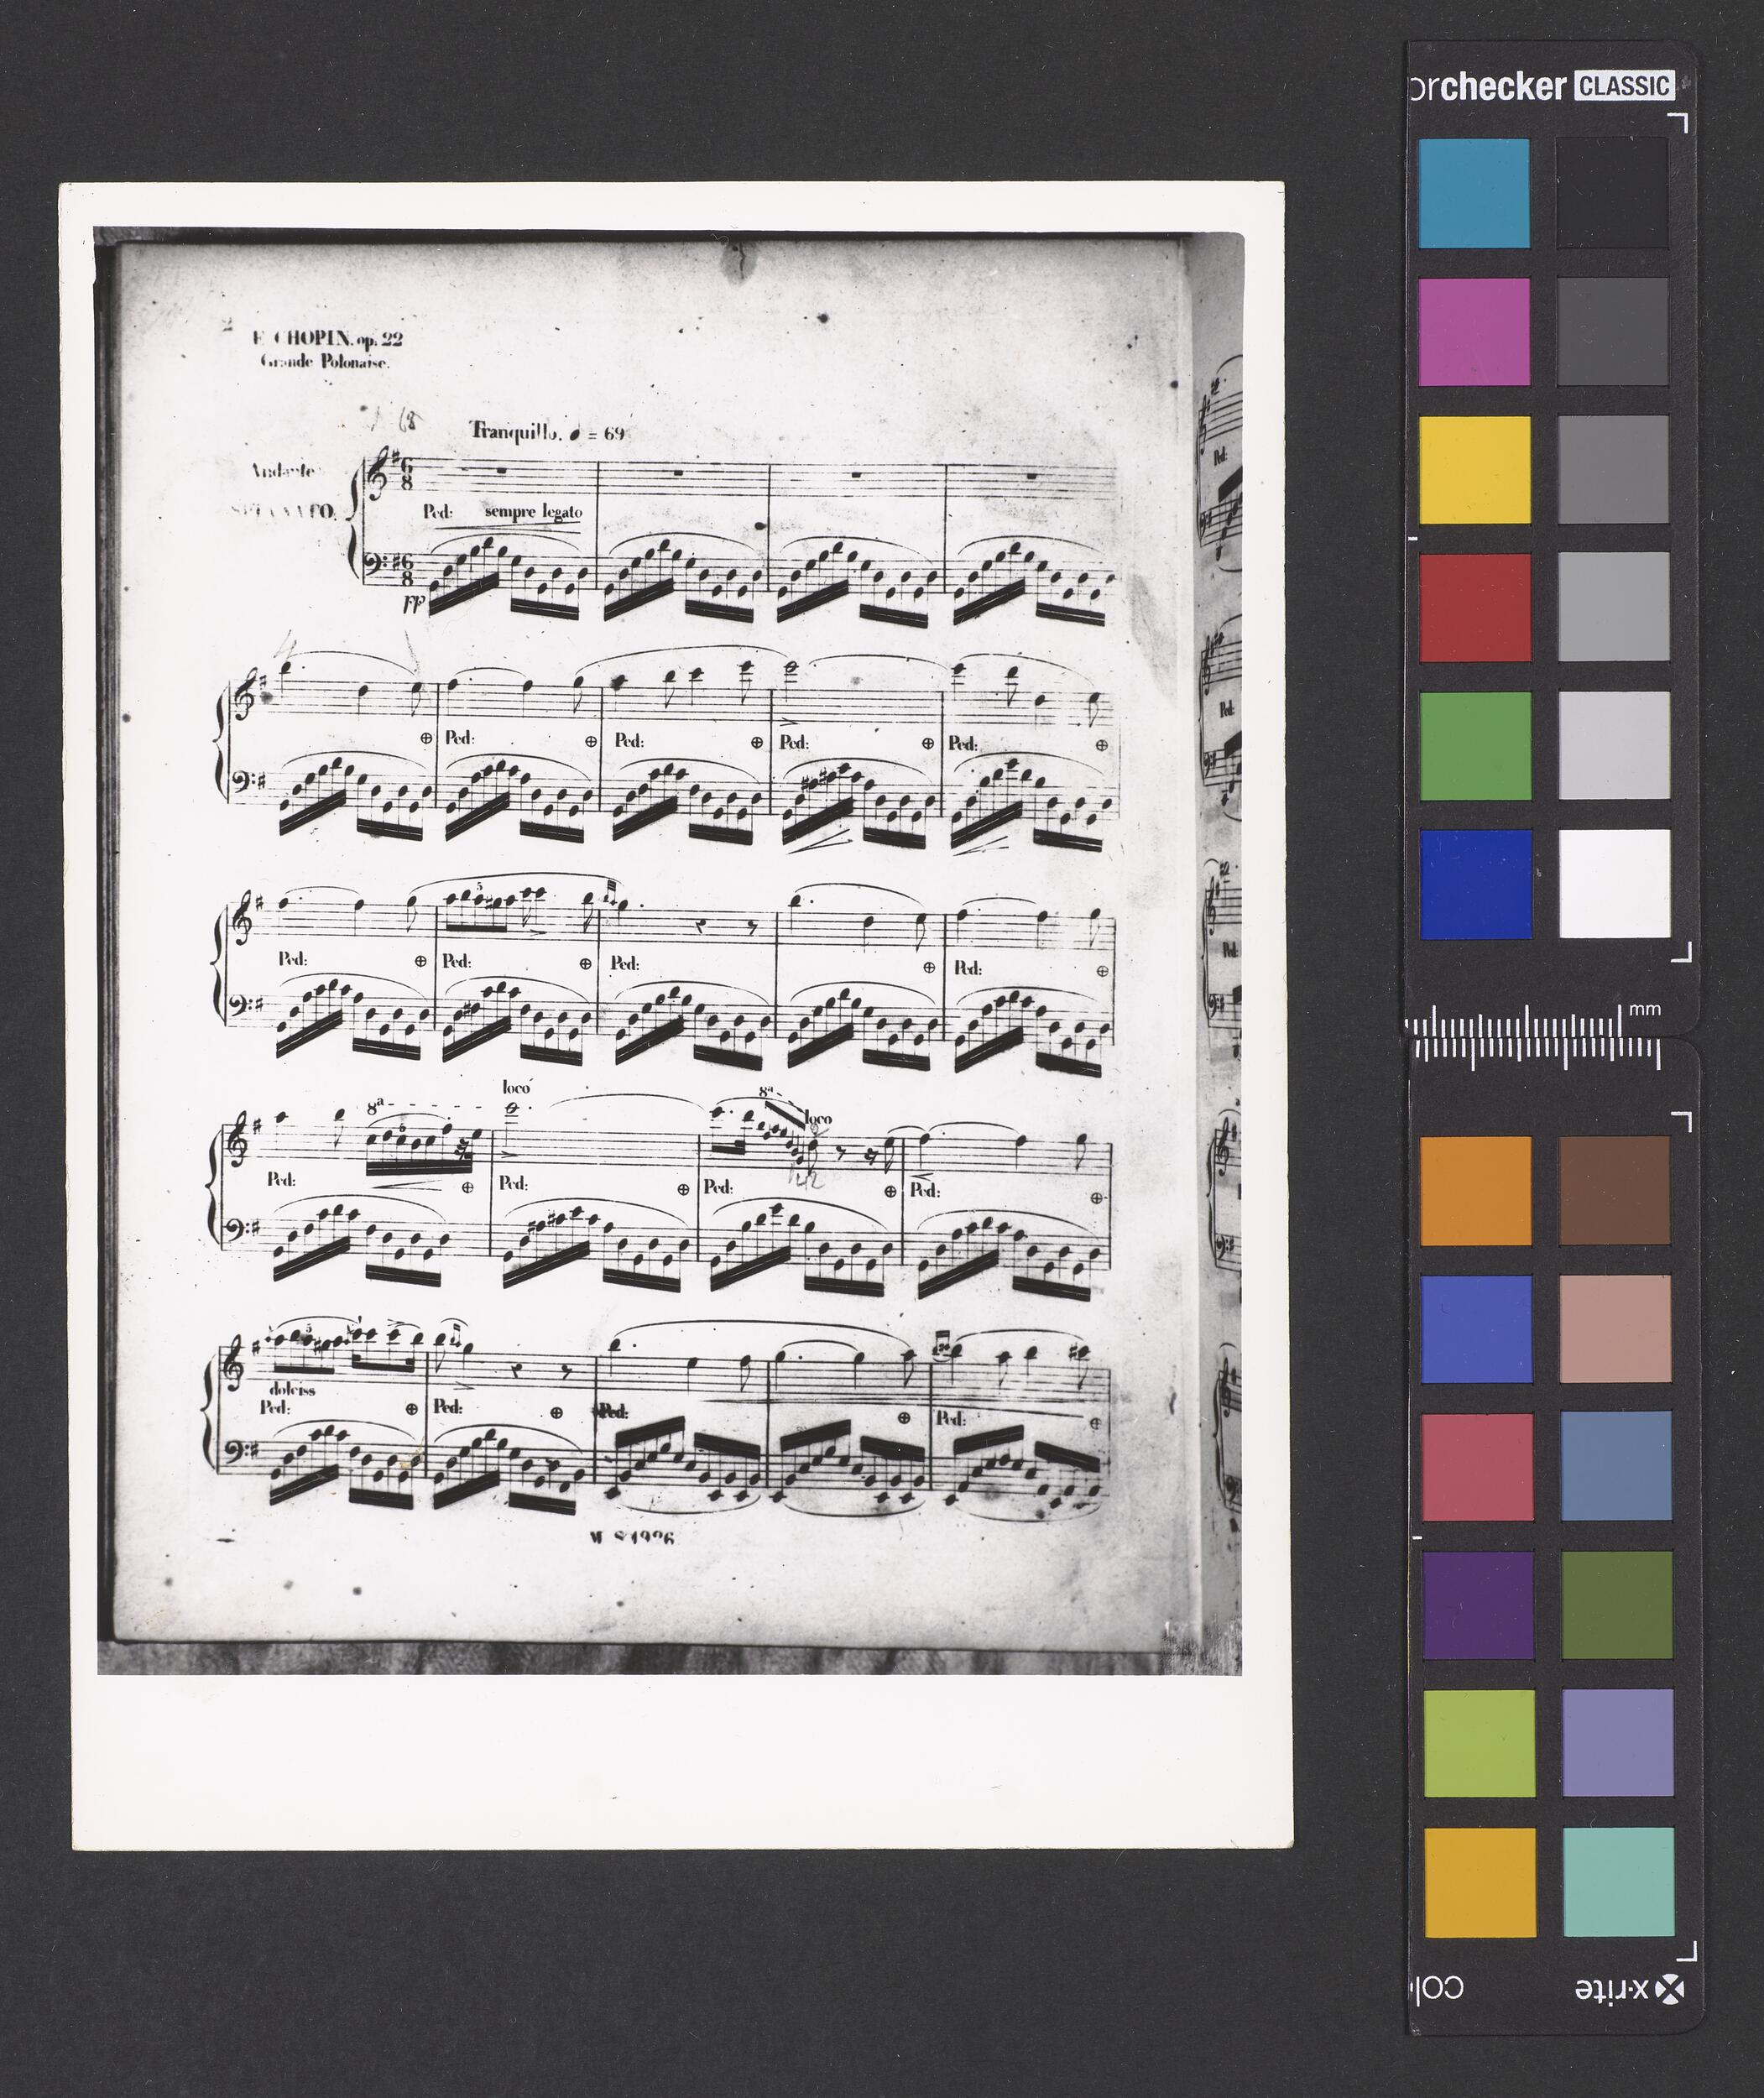 2
F. CHOPIN. op. 22
Grande Polonaise.
68
Tranquillo. = 69
Andante
SPIANATO.
6 8
Ped: sempre legato
6 8
PP
4
Ped: Ped: Ped: Ped:
5
Ped: Ped: Ped: Ped:
loco
8a 8a loco
6
Ped: Ped: Ped: Ped:
5
dolciss
Ped: Ped: Ped: Ped:
Ped:
Ped:
Ped:
orchecker CLASSIC
mm
x-rite
col